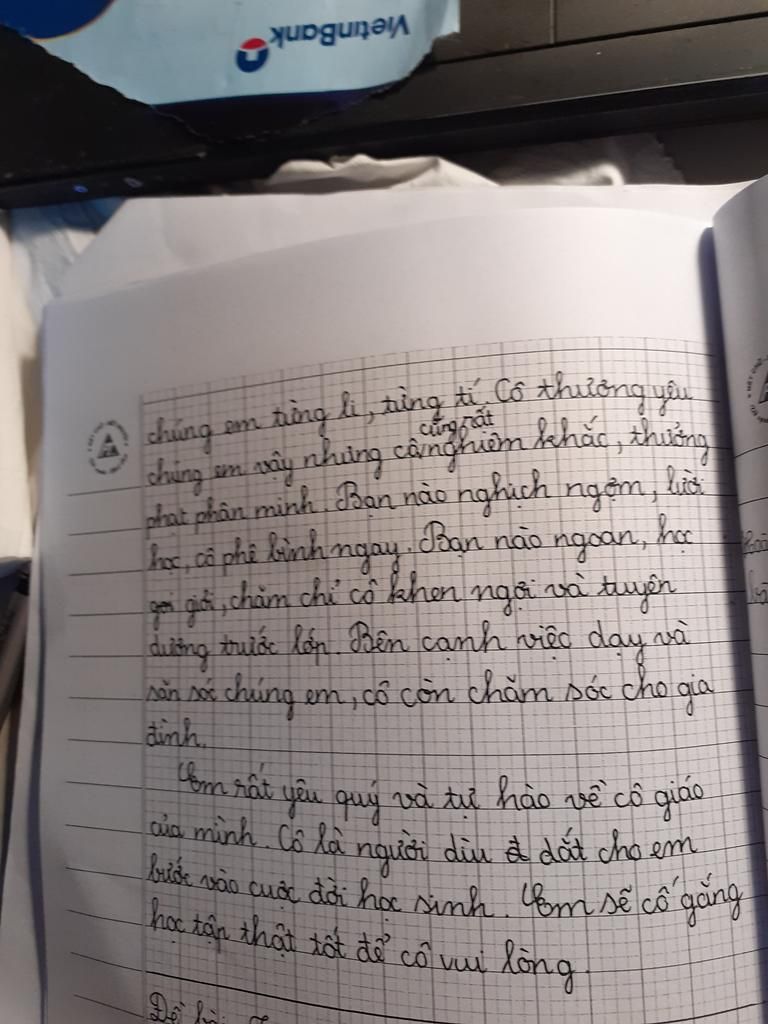 VietinBank
chúng em từng li, từng tí. Cô thương yêu
cũng rất
chúng em vậy nhưng cô nghiêm khắc, thưởng
phạt phân minh. Bạn nào nghịch ngợm, lười
học, cô phê bình ngay. Bạn nào ngoan, học
giỏi, chăm chỉ cô khen ngợi và tuyên
dương trước lớp. Bên cạnh việc dạy và
săn sóc chúng em, cô còn chăm sóc cho gia
đình.
Em rất yêu quý và tự hào về cô giáo
của mình. Cô là người dìu dắt cho em
bước vào cuộc đời học sinh. Em sẽ cố gắng
học tập thật tốt để cô vui lòng.
Đề